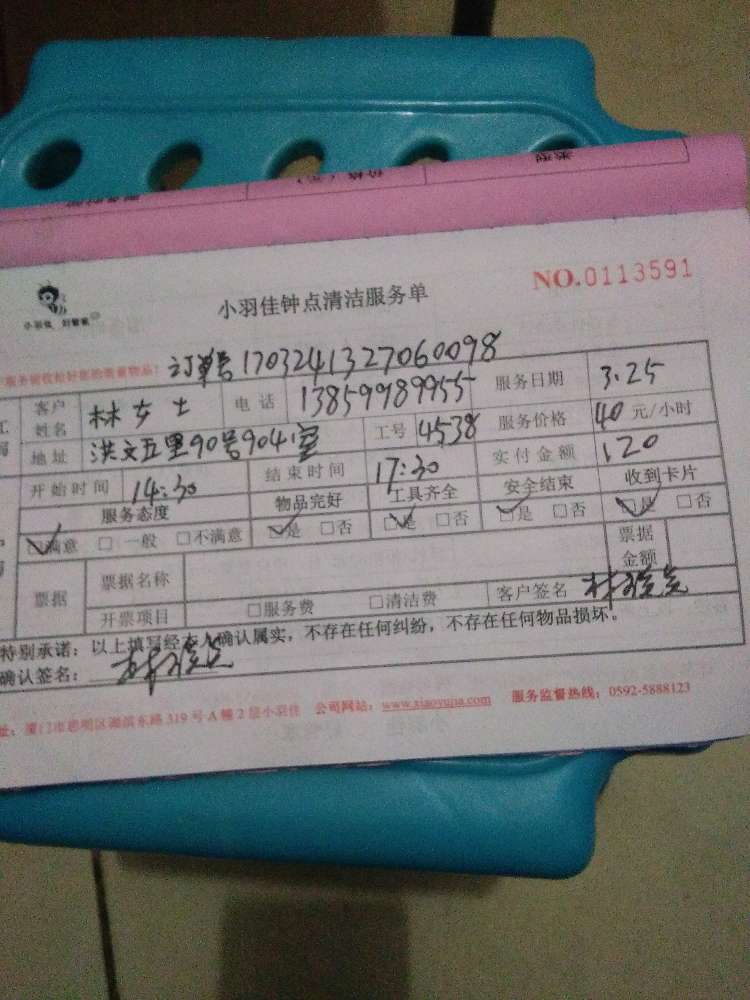 类型
价格（元）
小羽佳 好管家
小羽佳钟点清洁服务单
NO.0113591
订单号1703241327060098
客户姓名 林女士 电话 13859989955 服务日期 3.25
地址 洪文五里90号904室 工号 4538 服务价格 40 元/小时
开始时间 14:30 结束时间 17:30 实付金额 120
服务态度 物品完好 工具齐全 安全结束 收到卡片
☑满意 □一般 □不满意 ☑是 □否 ☑是 □否 ☑是 □否 ☑是 □否
票据 票据名称 票据金额
开票项目 □服务费 □清洁费 客户签名
特别承诺：以上填写经本人确认属实，不存在任何纠纷，不存在任何物品损坏。
确认签名：
址：厦门市思明区湖滨东路319号A幢2层小羽佳 公司网站：www.xiaoyujia.com 服务监督热线：0592-5888123